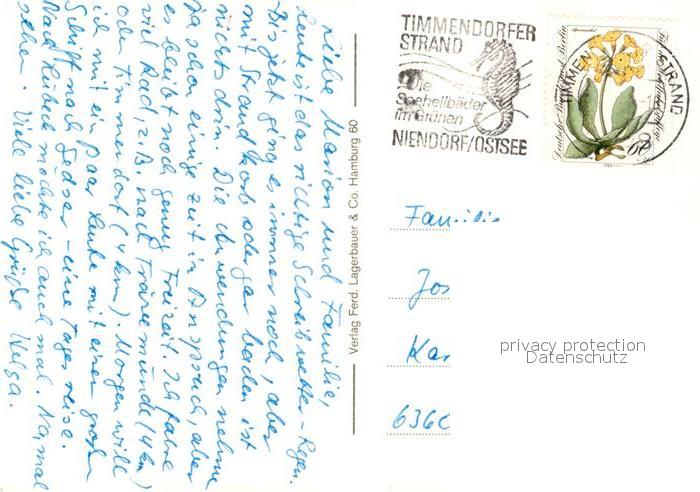 Liebe Marion und Familie,
heute ist das richtige Schreibwetter - Regen.
Bis jetzt ging es immer noch, aber
mit Strandkorb oder gar baden ist
nichts drin. Die Anwendungen nehmen
ja schon einige Zeit in Anspruch, aber
es bleibt noch genug Freizeit. Ich fahre
viel Rad, z.B. nach Travemünde (4 km)
oder Timmendorf (4 km). Morgen will
ich mit ein paar Leute mit einer großen
Schiff nach Gedser - eine Tagesreise.
Nach Lübeck möchte ich auch mal. Na, mal
sehen. Viele liebe Grüße Helga.
Verlag Ferd. Lagerbauer & Co. Hamburg 60
TIMMENDORFER
STRAND
Die
Seeheilbäder
im Grünen
NIENDORF/OSTSEE
TIMMEN STRAND
Deutsche Bundespost Berlin
60
Familie
Jos
Kar
636
privacy protection
Datenschutz